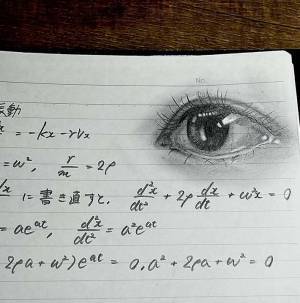 No.
振動
= -kx - rvx
= ω², r/m = 2ρ
に書き直すと、 d²x/dt² + 2ρ dx/dt + ω²x = 0
= ae^{at}, d²x/dt² = a²e^{at}
2ρa + ω²)e^{at} = 0, a² + 2ρa + ω² = 0